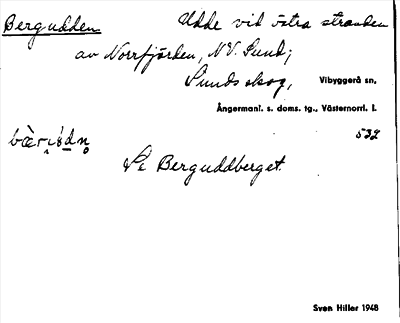 Bergudden Udde vid östra stranden
av Norrfjärden, NV. Sund;
Sunds skog, Vibyggerå sn,
Ångermanl. s. doms. tg., Västernorrl. l.
532
Se Berguddberget.
Sven Hiller 1948